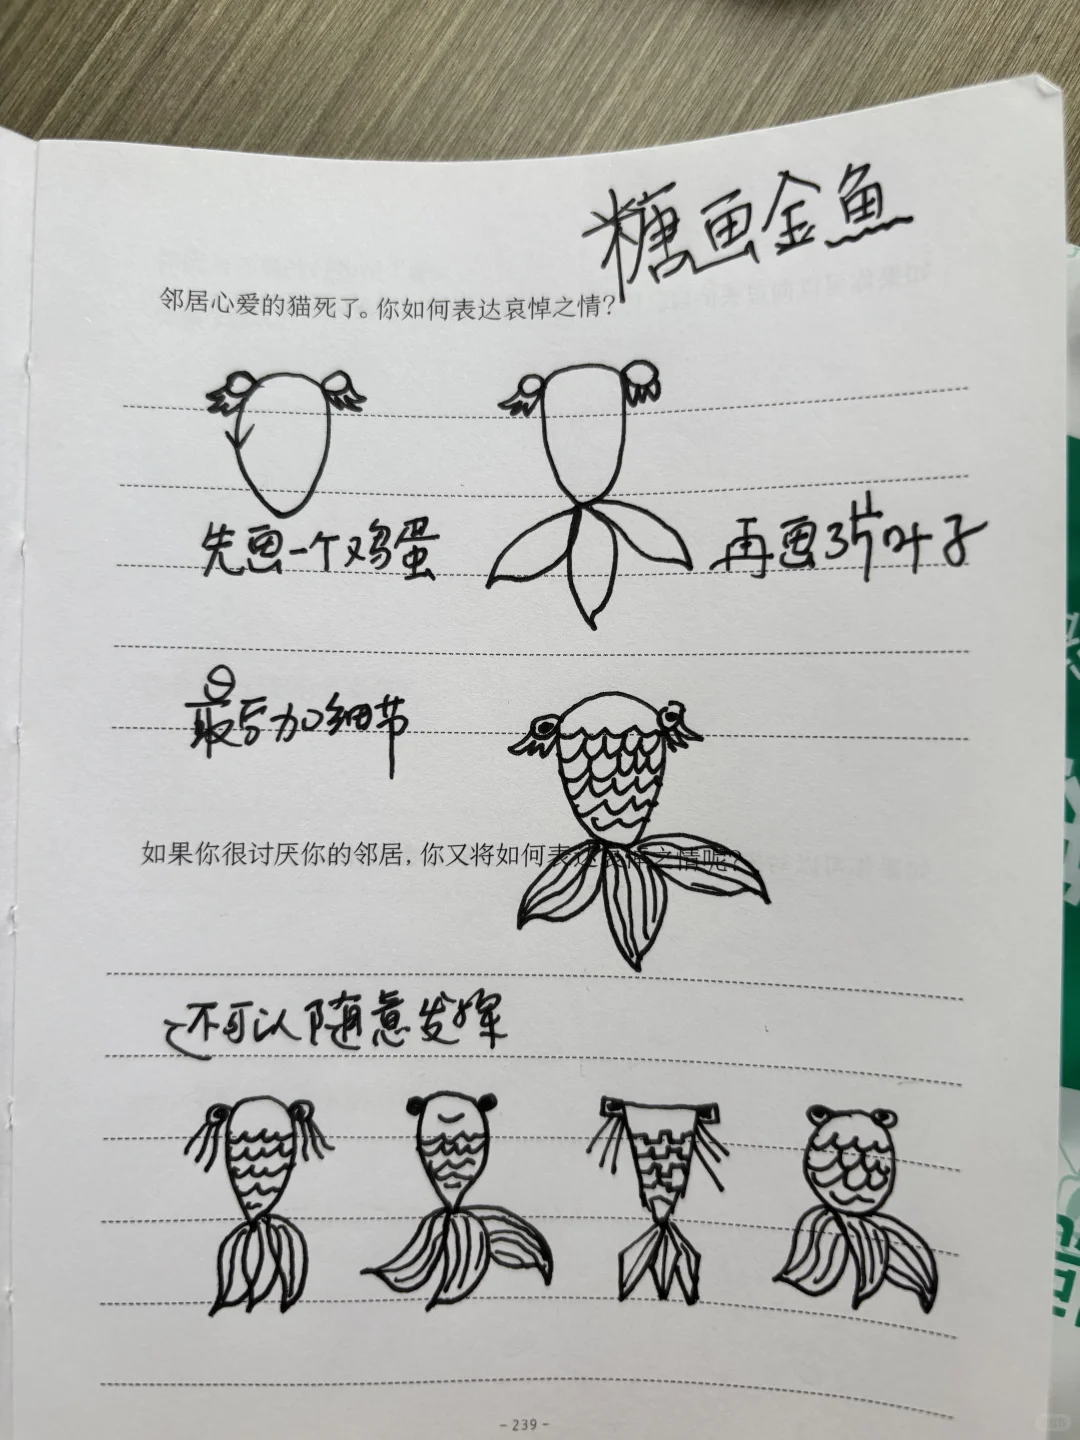 糖画金鱼
邻居心爱的猫死了。你如何表达哀悼之情？
先画一个鸡蛋
再画3片叶子
最后加细节
如果你很讨厌你的邻居，你又将如何表达哀悼之情呢？
还可以随意发挥
- 239 -